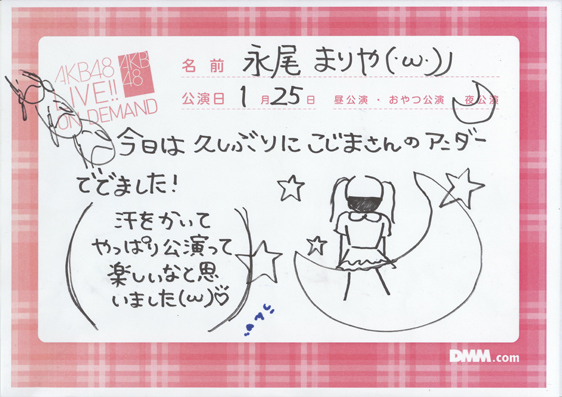 AKB48
LIVE!!
ON DEMAND
AKB
48
名前 永尾 まりや(・ω・)ノ
公演日 1月25日 昼公演・おやつ公演 夜公演
今日は久しぶりにこじまさんのアンダー
ででました!
汗をかいて
やっぱり公演って
楽しいなと思
いました(ω)♡
DMM.com